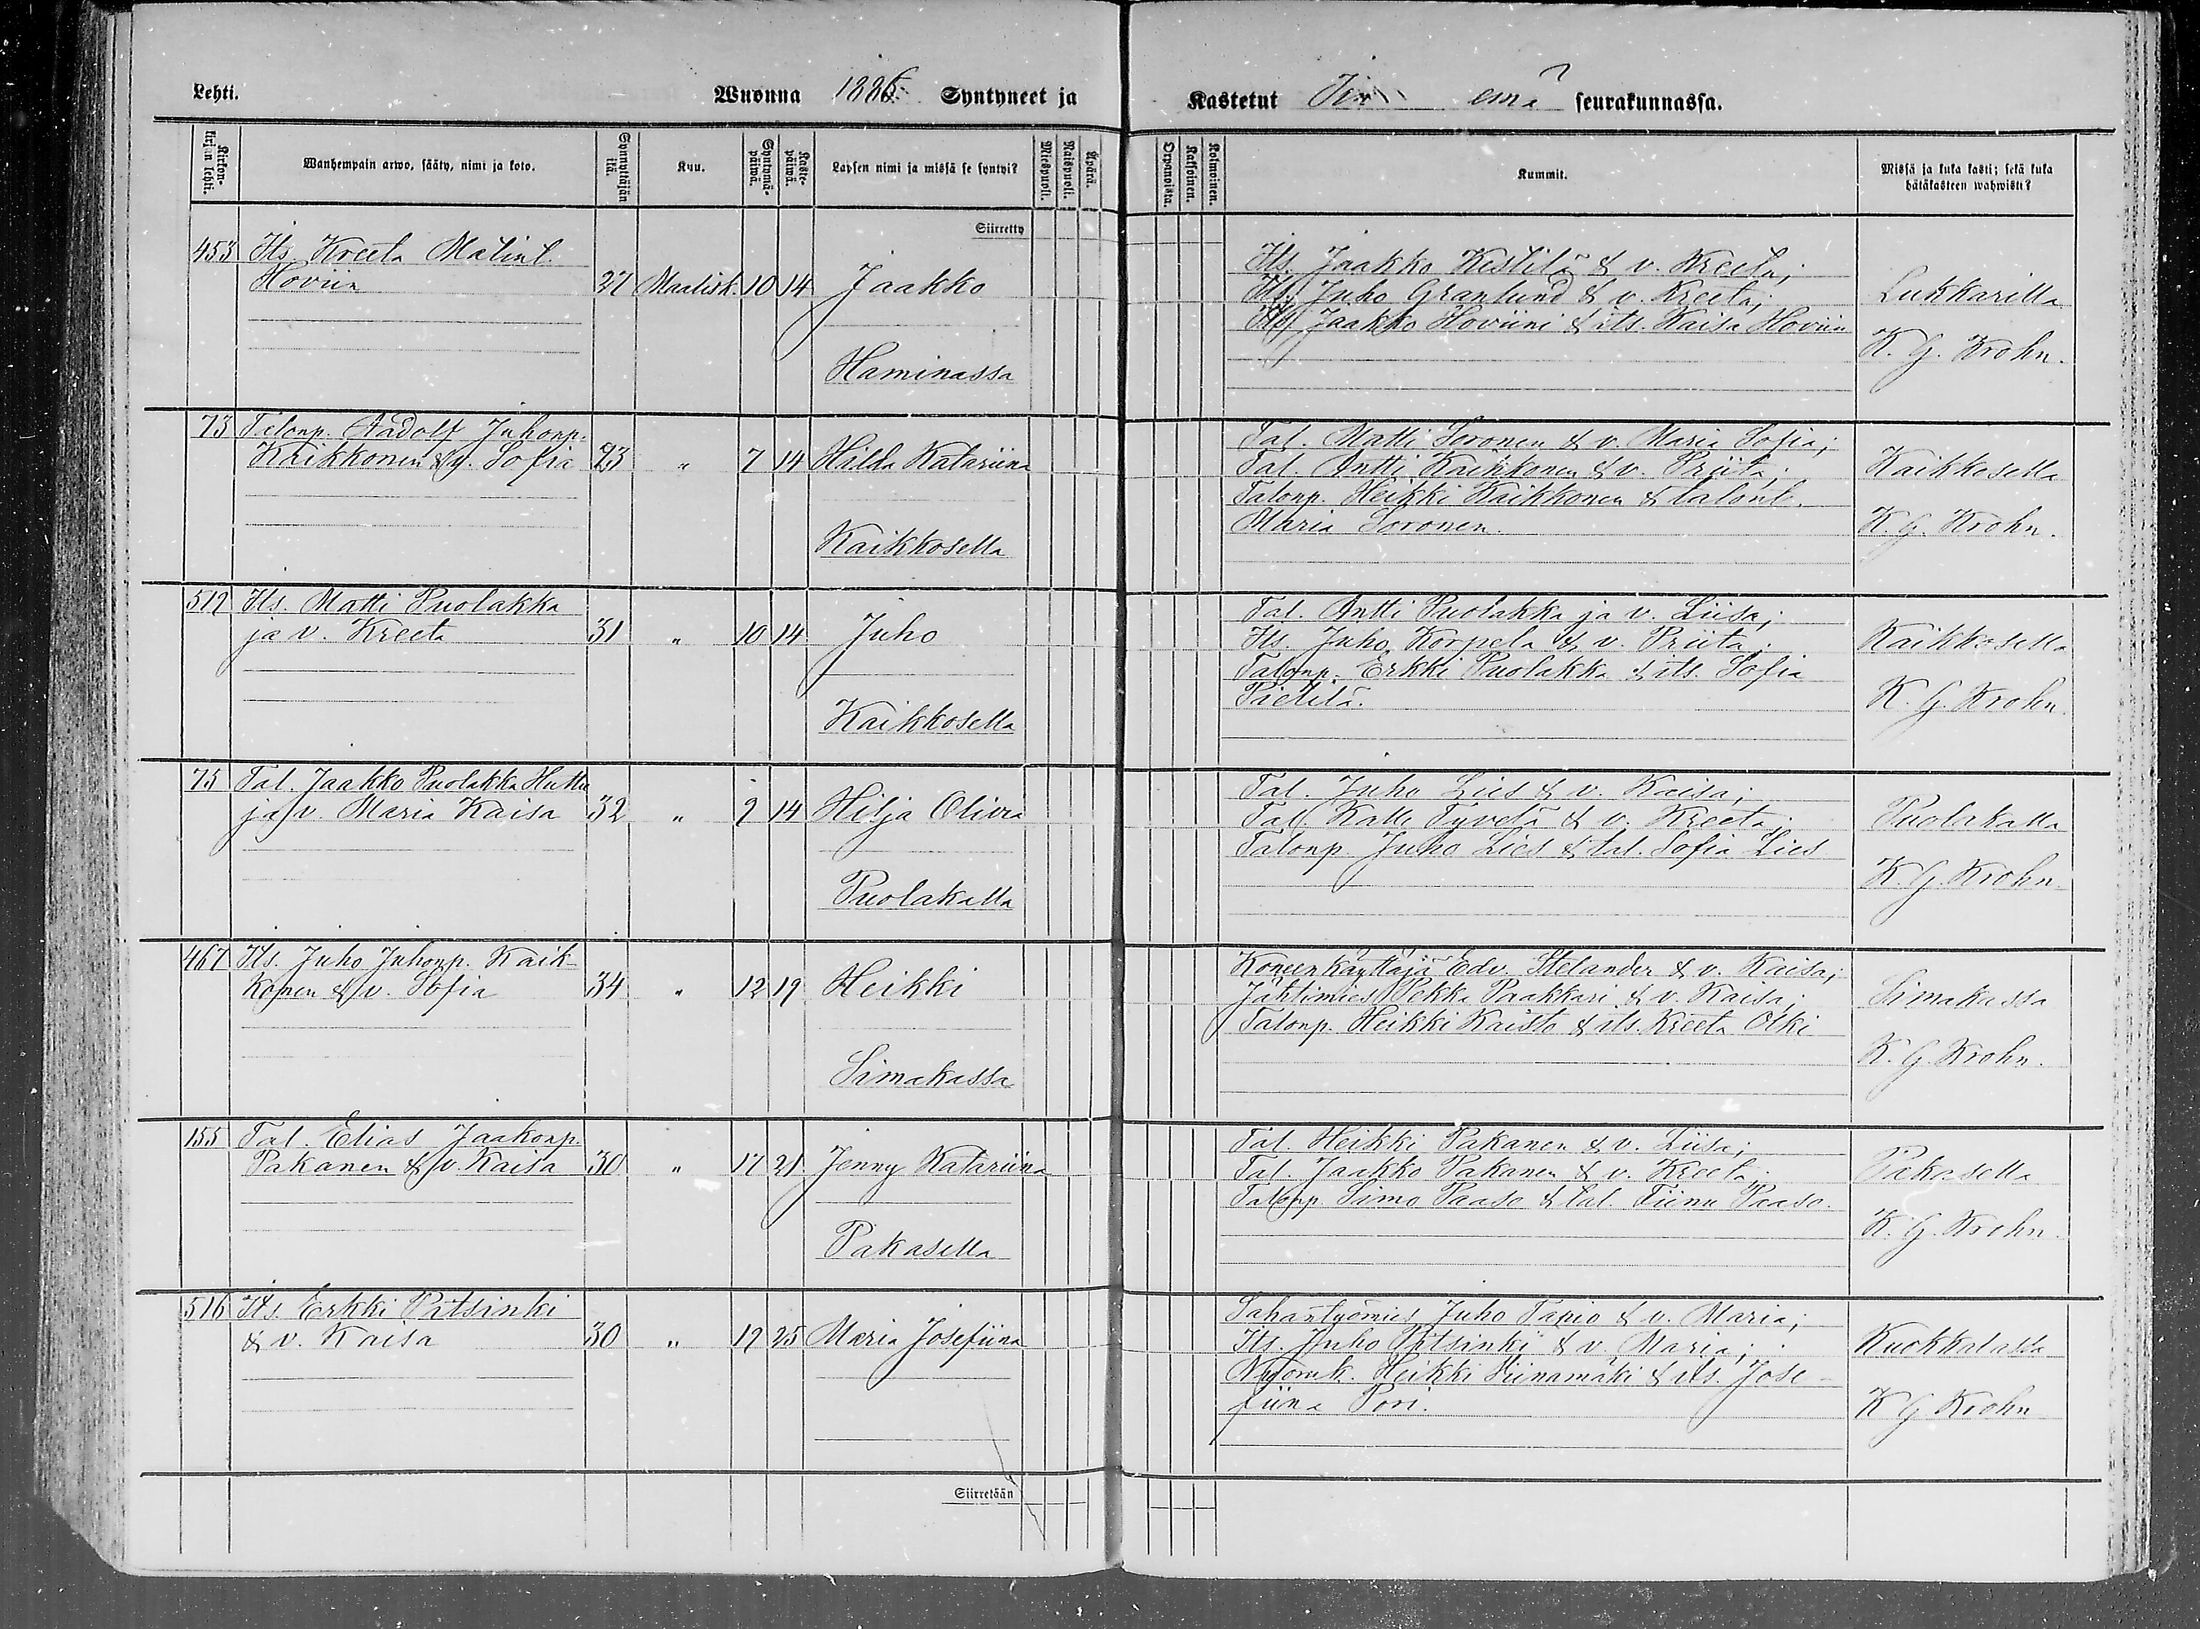 Lehti.
Wuonna 1886 Syntyneet ja
Kastetut emä seurakunnassa.
Kirkonkirjan lehti.
Wanhempain arwo, sääty, nimi ja koto.
Synnyttäjän ikä
Kuu.
Syntymäpäiwä.
Kastepäiwä.
Lapsen nimi ja missä se syntyi?
Miespuoli.
Naispuoli.
Äpärä.
Orpanoista.
Kaksoinen.
Kolmoinen.
Kummit.
Missä ja kuka kasti; sekä kuka hätäkasteen wahwisti?
Siirretty
453 Its. Kreeta Matint.
Hoviin 27 Maalisk. 10 14 Jaakko
Haminassa
Its. Jaakko Kestilä & v. Kreeta;
Its. Juho Granlund & v. Kreeta;
Its. Jaakko Hoviini & its. Kaisa Hoviin
Lukkarilla
K. G. Krohn.
73 Talonp. Aadolf Juhonp.
Kaikkonen & v. Sofia 23 " 7 14 Hilda Katariina
Kaikkosella
Tal. Matti Soronen & v. Maria Sofia;
Tal. Antti Kaikkonen & v. Priita;
Talonp. Heikki Kaikkonen & talont.
Maria Soronen.
Kaikkosella
K. G. Krohn.
Its. Matti Puolakka
ja v. Kreeta 31 " 10 14 Juho
Kaikkosella
Tal. Antti Puolakka ja v. Liisa;
Its. Juho Korpela & v. Priita;
Talonp. Erkki Puolakka & its. Sofia
Pietilä.
Kaikkosella
K. G. Krohn.
75 Tal. Jaakko Puolakka Huttu
ja v. Maria Kaisa 32 " 9 14 Hilja Olivia
Puolakalla
Tal. Juho Lies & v. Kaisa;
Tal. Kalle Tyvelä & v. Kreeta;
Talonp. Juho Lies & tal. Sofia Lies
Puolakalla
K. G. Krohn.
467 Its. Juho Juhonp. Kaik-
konen & v. Sofia 34 " 12 19 Heikki
Simakassa
Koneenkäyttäjä Edv. Stelander & v. Kaisa;
Jahtimies Pekka Paakkari & v. Kaisa;
Talonp. Heikki Kaisto & its. Kreeta Olki
Simakassa
K. G. Krohn.
155 Tal. Elias Jaakonp.
Pakanen & v. Kaisa 30 " 17 21 Jenny Katariina
Pakasella
Tal. Heikki Pakanen & v. Liisa;
Tal. Jaakko Pakanen & v. Kreeta;
Talonp. Simo Paaso & tal. Tiina Paaso.
Pakasella
K. G. Krohn.
516 Its. Erkki Pitsinki
& v. Kaisa 30 " 19 25 Maria Josefiina
Sahantyömies Juho Tapio & v. Maria;
Its. Juho Pitsinki & v. Maria;
Nuoruk. Heikki Viinamäki & its. Jose-
fiina Pori.
Kuokkalassa
K G Krohn
Siirretään